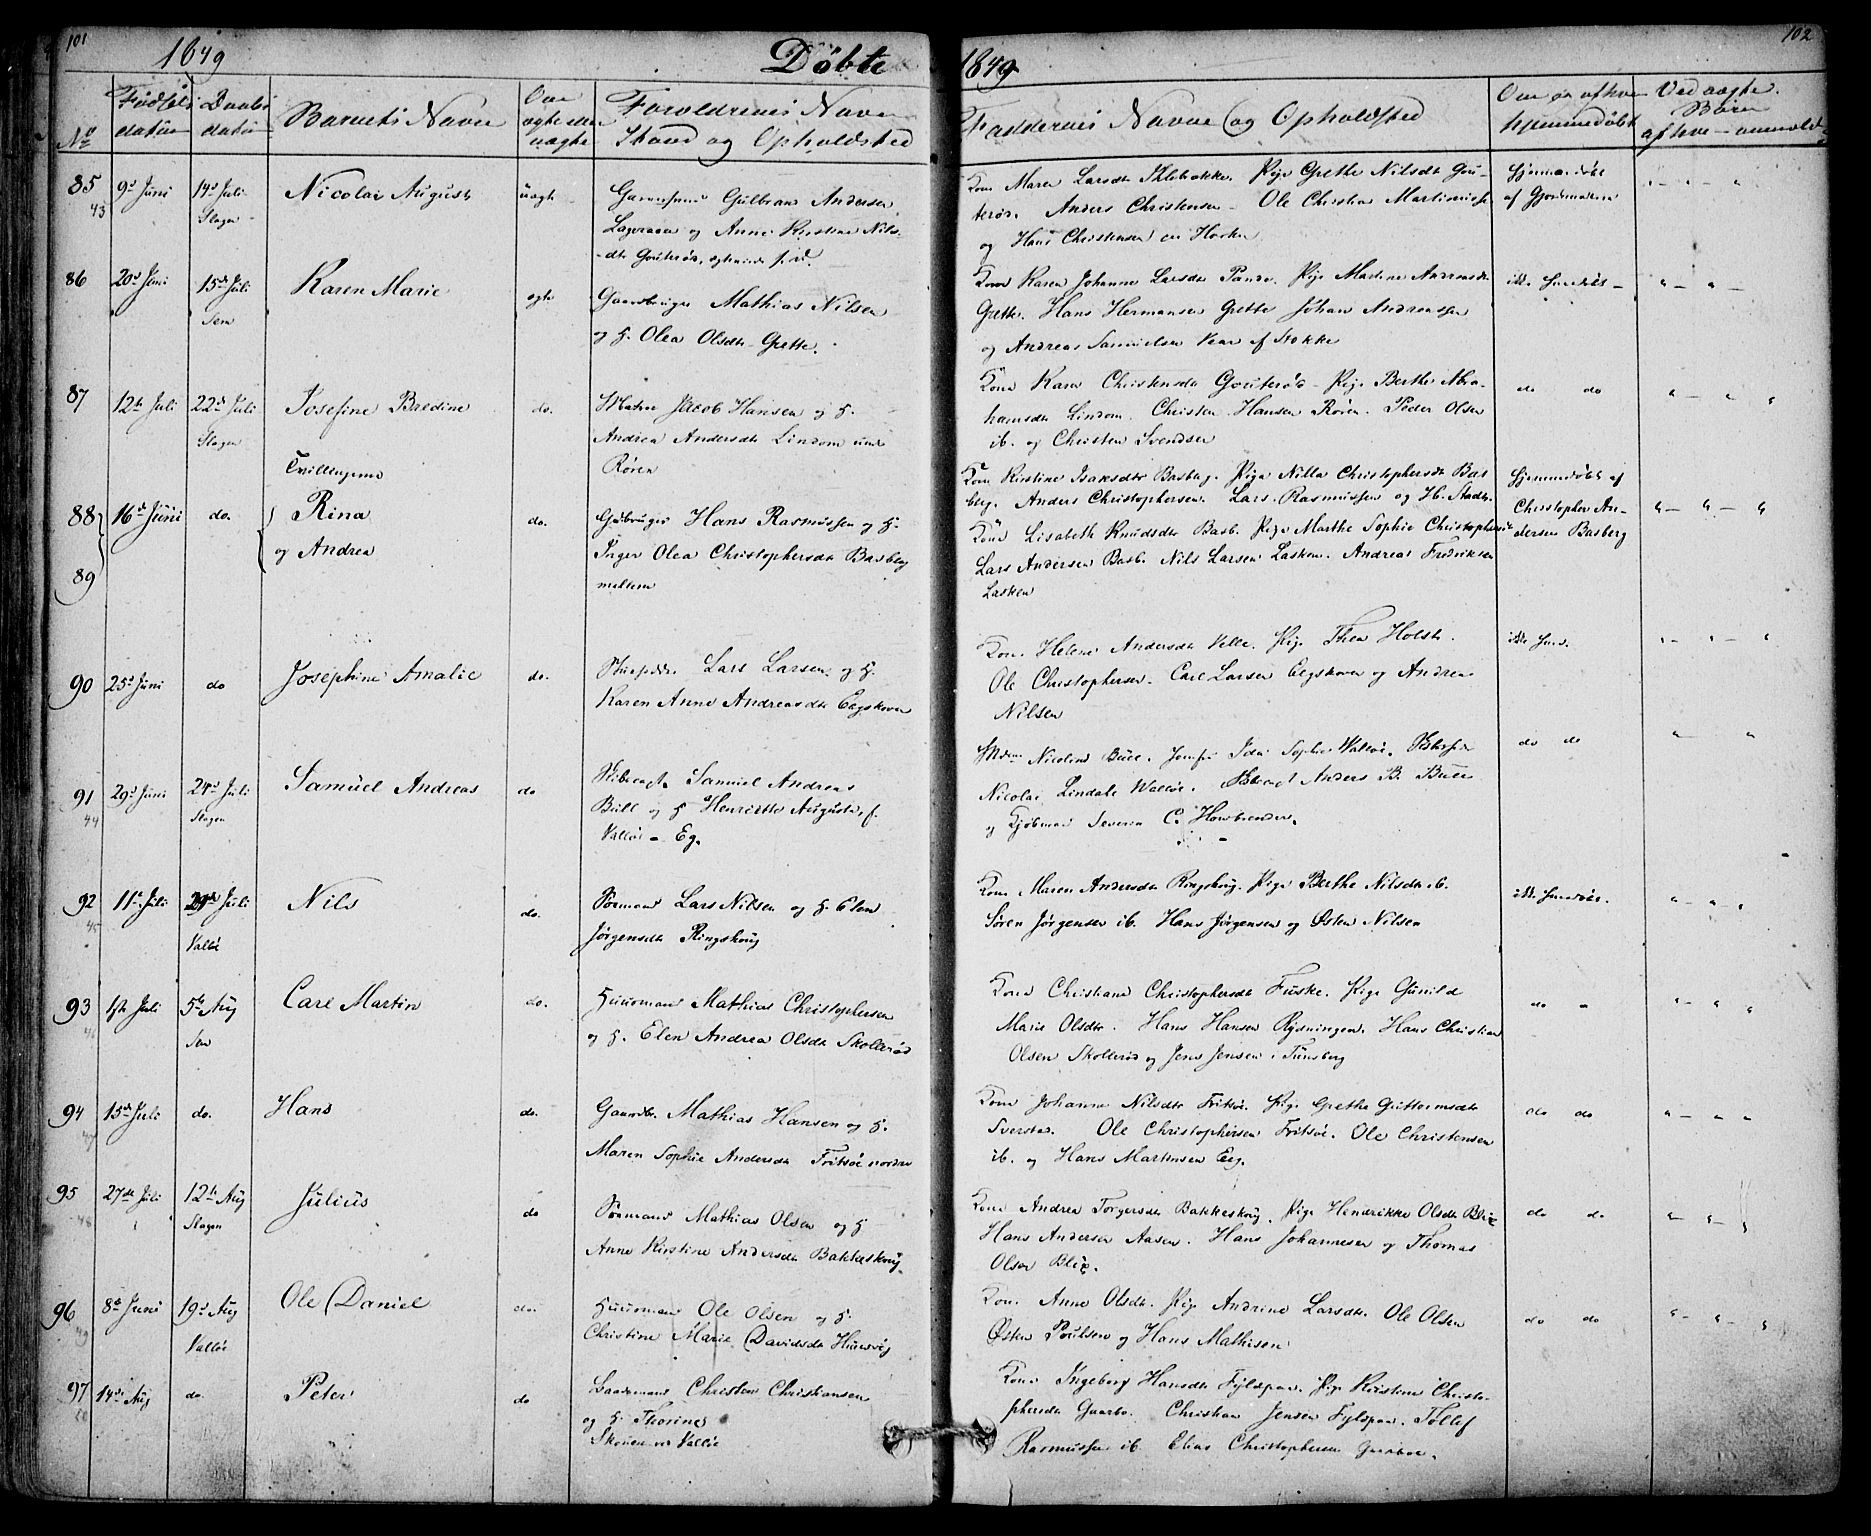 101
1849
Døbte
1849
102
No
Fødsels datum
Daabs datum
Barnets Navn
Om ægte eller uægte
Forældrenes Navn Stand og Opholdsted
Faddernes Navne og Opholdsted
Om og af hvem hjemmedøbt
Ved uægte Børn af hvem anmeldt
85
43
9d Juni
14d Juli
Slagen
Nicolai August
uægte
Gulbran Andersen
og Anne Kirstine Nils-
dtr Gouterød,
Kone Maren Larsdtr Pige Grethe Nilsdtr Gou-
terød. Anders Christensen Ole Christian
og Hans Christensen
Hjemmedøbt
af Gjordmoderen
86
20d Juni
15d Juli
Sem
Karen Marie
ægte
Gaardbruger Mathias Nilsen
og H. Olea Olsdtr Grette.
Kone Karen Johanne Larsdtr Pige Martine Andreasdtr
Grette. Hans Hermansen Grette Johan Andreassen
og Andreas Samuelsen Vear af Stokke
ikke hjemmedøbt
87
12te Juli
22d Juli
Slagen
Josefine Bredine
do.
Jacob Hansen og H.
Andrea Andersdtr Lindom
Røren
Kone Karen Christensdtr Gouterød Pige Berthe Abra-
hamsdtr Lindom. Christen Hansen Røren. Peder Olsen
ib. og Christen Svendsen
do do
Tvillingerne
88
89
16d Juni
do.
Rina
og Andrea
do.
Gbruger Hans Rasmussen og H.
Inger Olea Christophersdtr Basberg
mellem
Kone Kirstine Isaksdtr Basberg. Pige Nilla Christophersdtr Bas
berg. Anders Christophersen. Lars Rasmussen og
Kone Lisabeth Knudsdtr Basb. Pige Marthe Sophie Christophersdtr
Lars Andersen Basb. Nils Larsen Lasken. Andreas Fredriksen
Lasken
Hjemmedøbt af
Christopher An-
dersen Basberg
90
25d Juni
do
Josephine Amalie
do.
Lars Larsen og H.
Karen Anne Andreasdtr Eegskoven
Kone Helene Andersdtr Velle. Pige Thea Holst.
Ole Christophersen. Carl Larsen Eegskoven og Andrea
Nilsen
ikke hjmd.
91
44
29d Juni
24d Juli
Slagen
Samuel Andreas
do
Samuel Andreas
Bull og H Henriette Augusta,
Valløe - Eg.
Nicoline Bull. Jomfru Ida Sophie Valløe.
Nicolai Lindahl Valløe. Anders B. Bull
og Kjøbmand Severin C.
do do
92
45
11te Juli
29de Juli
Valløe
Nils
do.
Sømand Lars Nilsen og H. Elen
Jørgensdtr Ringskoug
Kone Maren Andersdtr Ringskoug. Pige Berthe Nilsdtr ib.
Søren Jørgensen ib. Hans Jørgensen og Østen Nilsen
ikke hjemmedøbt.
93
46
Juli
5te Aug
Sem
Carl Martin
do.
Huusmand Mathias Christophersen
og H. Elen Andrea Olsdtr Skollerød
Kone Christiane Christophersdtr Fuske. Pige Gunild
Marie Olsdtr. Hans Hansen Rydningen. Hans Christian
Olsen Skollerød og Jens Jensen i Tunsberg
do
94
47
15de Juli
do.
Hans
do.
Gaardbr. Mathias Hansen og H.
Maren Sophie Andersdtr Fritsøe nordre
Kone Johanne Nilsdtr Fritsøe. Pige Grethe Guttormsdtr
Sverstad. Ole Christophersen Fritsøe. Ole Christensen
ib. og Hans Martinsen Eeg.
do do
95
48
27de Juli
12te Aug
Slagen
Julius
do
Sømand Mathias Olsen og H
Anne Kirstine Andersdtr Bakkeskoug.
Kone Andrea Torgersdtr Bakkeskoug. Pige Hendrikke Olsdtr Blix
Hans Andersen Aasen. Hans Johannesen og Thomas
Olsen Blix.
do do
96
49
8de Juni
19d Aug
Valløe
Ole Daniel
do.
Huusmand Ole Olsen og H.
Christine Marie Davidsdtr Husvig
Kone Anne Olsdtr. Pige Andrine Larsdtr. Ole Olsen
Østen Poulsen og Hans Mathisen
do do
97
50
14de Aug
do.
Peter
do
Christen Christiansen
og H. Thorine
Valløe
Kone Ingeborg Hansdtr Fyldpaa. Pige Kirstine Christo-
phersdtr Guarbo. Christian Jensen Fyldpaa. Tollef
Rasmussen ib. Elias Christophersen